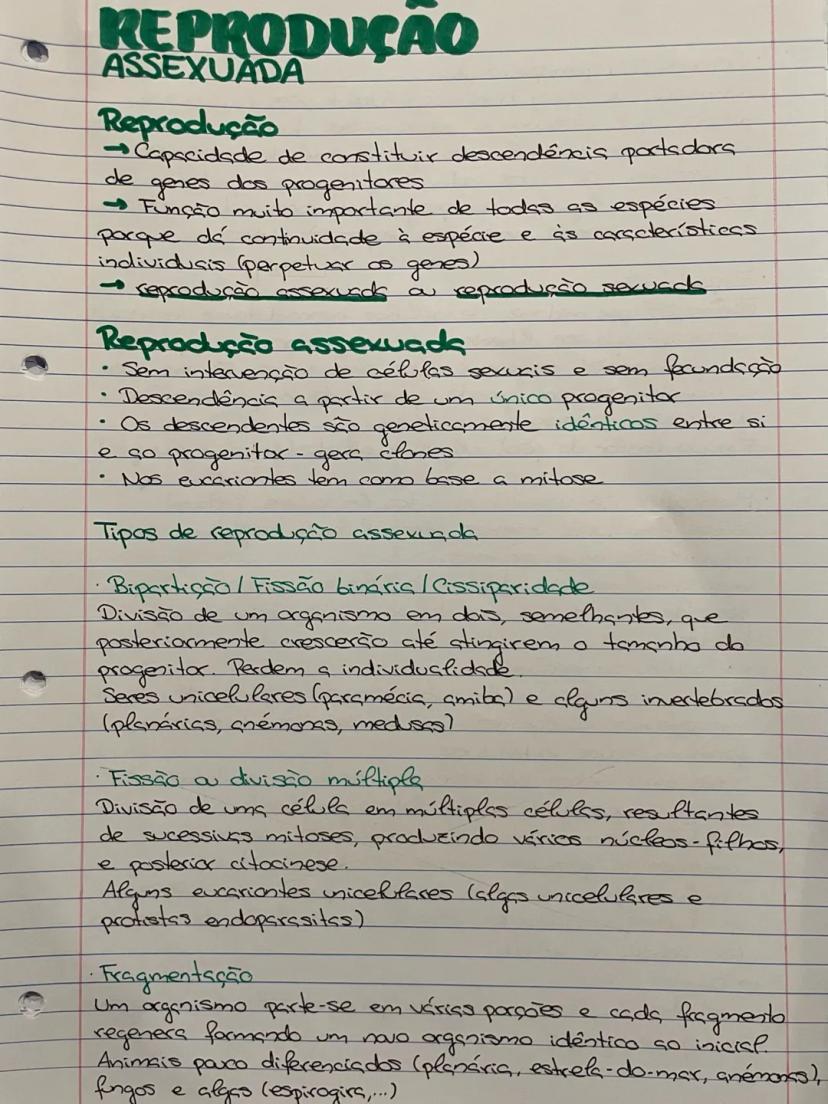 REPRODUÇÃO
ASSEXUADA
Reprodução
→ Capacidade de constituir descendência portadora
de genes dos progenitores
→ Função muito importante de todas as espécies
porque dá continuidade à espécie e às características
individuais (perpetuar os genes)
→ reprodução assexuada ou reprodução sexuada
Reprodução assexuada
· Sem intervenção de células sexuais e sem fecundação
· Descendência a partir de um único progenitor
· Os descendentes são geneticamente idênticos entre si
e ao progenitor - gera clones
· Nos eucariontes tem como base a mitose
Tipos de reprodução assexuada
· Bipartição / Fissão binária / Cissiparidade
Divisão de um organismo em dois, semelhantes, que
posteriormente crescerão até atingirem o tamanho do
progenitor. Perdem a individualidade.
Seres unicelulares (paramécia, amiba) e alguns invertebrados
(planárias, anémonas, medusas)
· Fissão ou divisão múltipla
Divisão de uma célula em múltiplas células, resultantes
de sucessivas mitoses, produzindo vários núcleos-filhos,
e posterior citocinese.
Alguns eucariontes unicelulares (algas unicelulares e
protistas endoparasitas)
· Fragmentação
Um organismo parte-se em várias porções e cada fragmento
regenera formando um novo organismo idêntico ao inicial.
Animais pouco diferenciados (planária, estrela-do-mar, anémonas),
fungos e algas (espirogira,...)